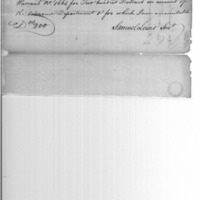 Warrant No. 1664 for Two hundred Dollars on account of
the Department & for which I am accountable
Drs 200
Samuel Lewis Senr.